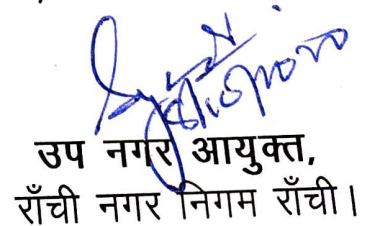 उप नगर आयुक्त,
राँची नगर निगम राँची।